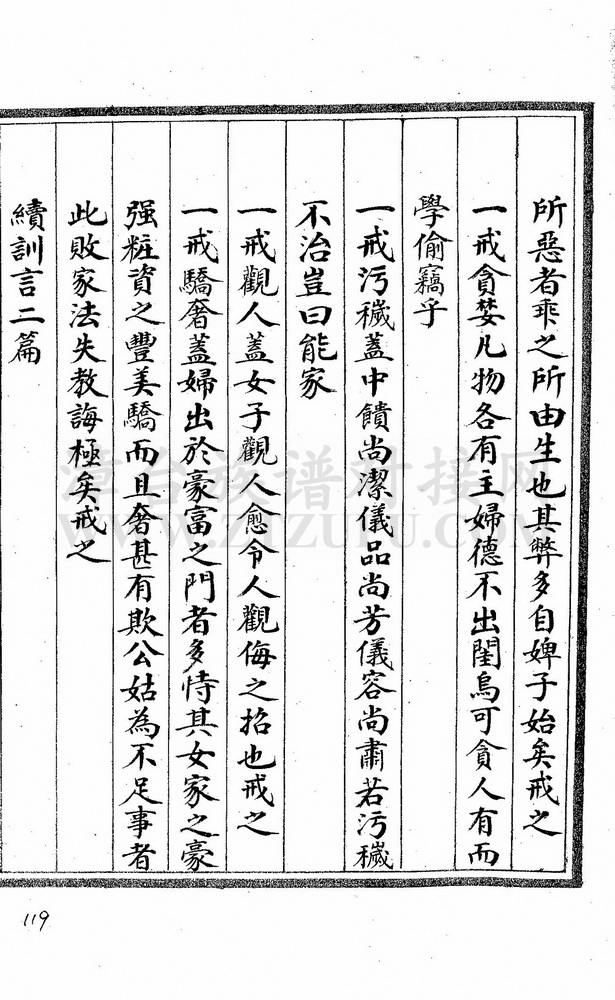 所惡者乖之所由生也其弊多自婢子始矣戒之
一戒貪婪凡物各有主婦德不出閨烏可貪人有而
學偷竊乎
一戒污穢蓋中饋尚潔儀品尚芳儀容尚肅若污穢
不治豈曰能家
一戒觀人蓋女子觀人愈令人觀侮之招也戒之
一戒驕奢蓋婦出於豪富之門者多恃其女家之豪
强粧資之豐美驕而且奢甚有欺公姑為不足事者
此敗家法失教誨極矣戒之
續訓言二篇
119
漳台族谱对接网
WWW.ZTZUPU.COM